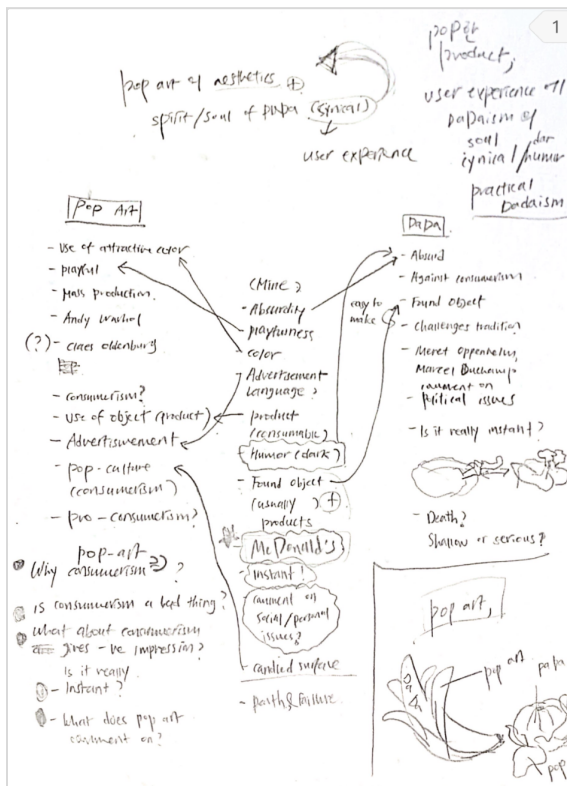 1
pop art of aesthetics +
spirit/soul of DaDa (cynical)
user experience
product,
user experience
Dadaism of
soul
cynical/humor
practical
Dadaism
Pop Art
- Use of attractive color
- playful
- Mass production.
- Andy Warhol
(?) - claes oldenburg
- consumerism?
- Use of object (product)
- Advertisement
- pop-culture
(consumerism)
- pro-consumerism?
pop-art
Why consumerism?
is consumerism a bad thing?
what about consumerism
gives -ve impression?
Is it really
- Instant?
- What does pop art
comment on?
(Mine)
- Absurdity
- playfulness
- color
- Advertisement
Language?
- product
(consumable)
- Humor (dark)
- Found object
(usually) +
products
- McDonald's
- Instant!
comment on
social/personal
issues?
- candied surface
easy to
make
DaDa
- Absurd
- Against consumerism
- Found object
- Challenges tradition
- Meret Oppenheim,
Marcel Duchamp
comment on
- political issues
- Is it really instant?
- Death?
Shallow or serious?
pop art,
pop art
pop